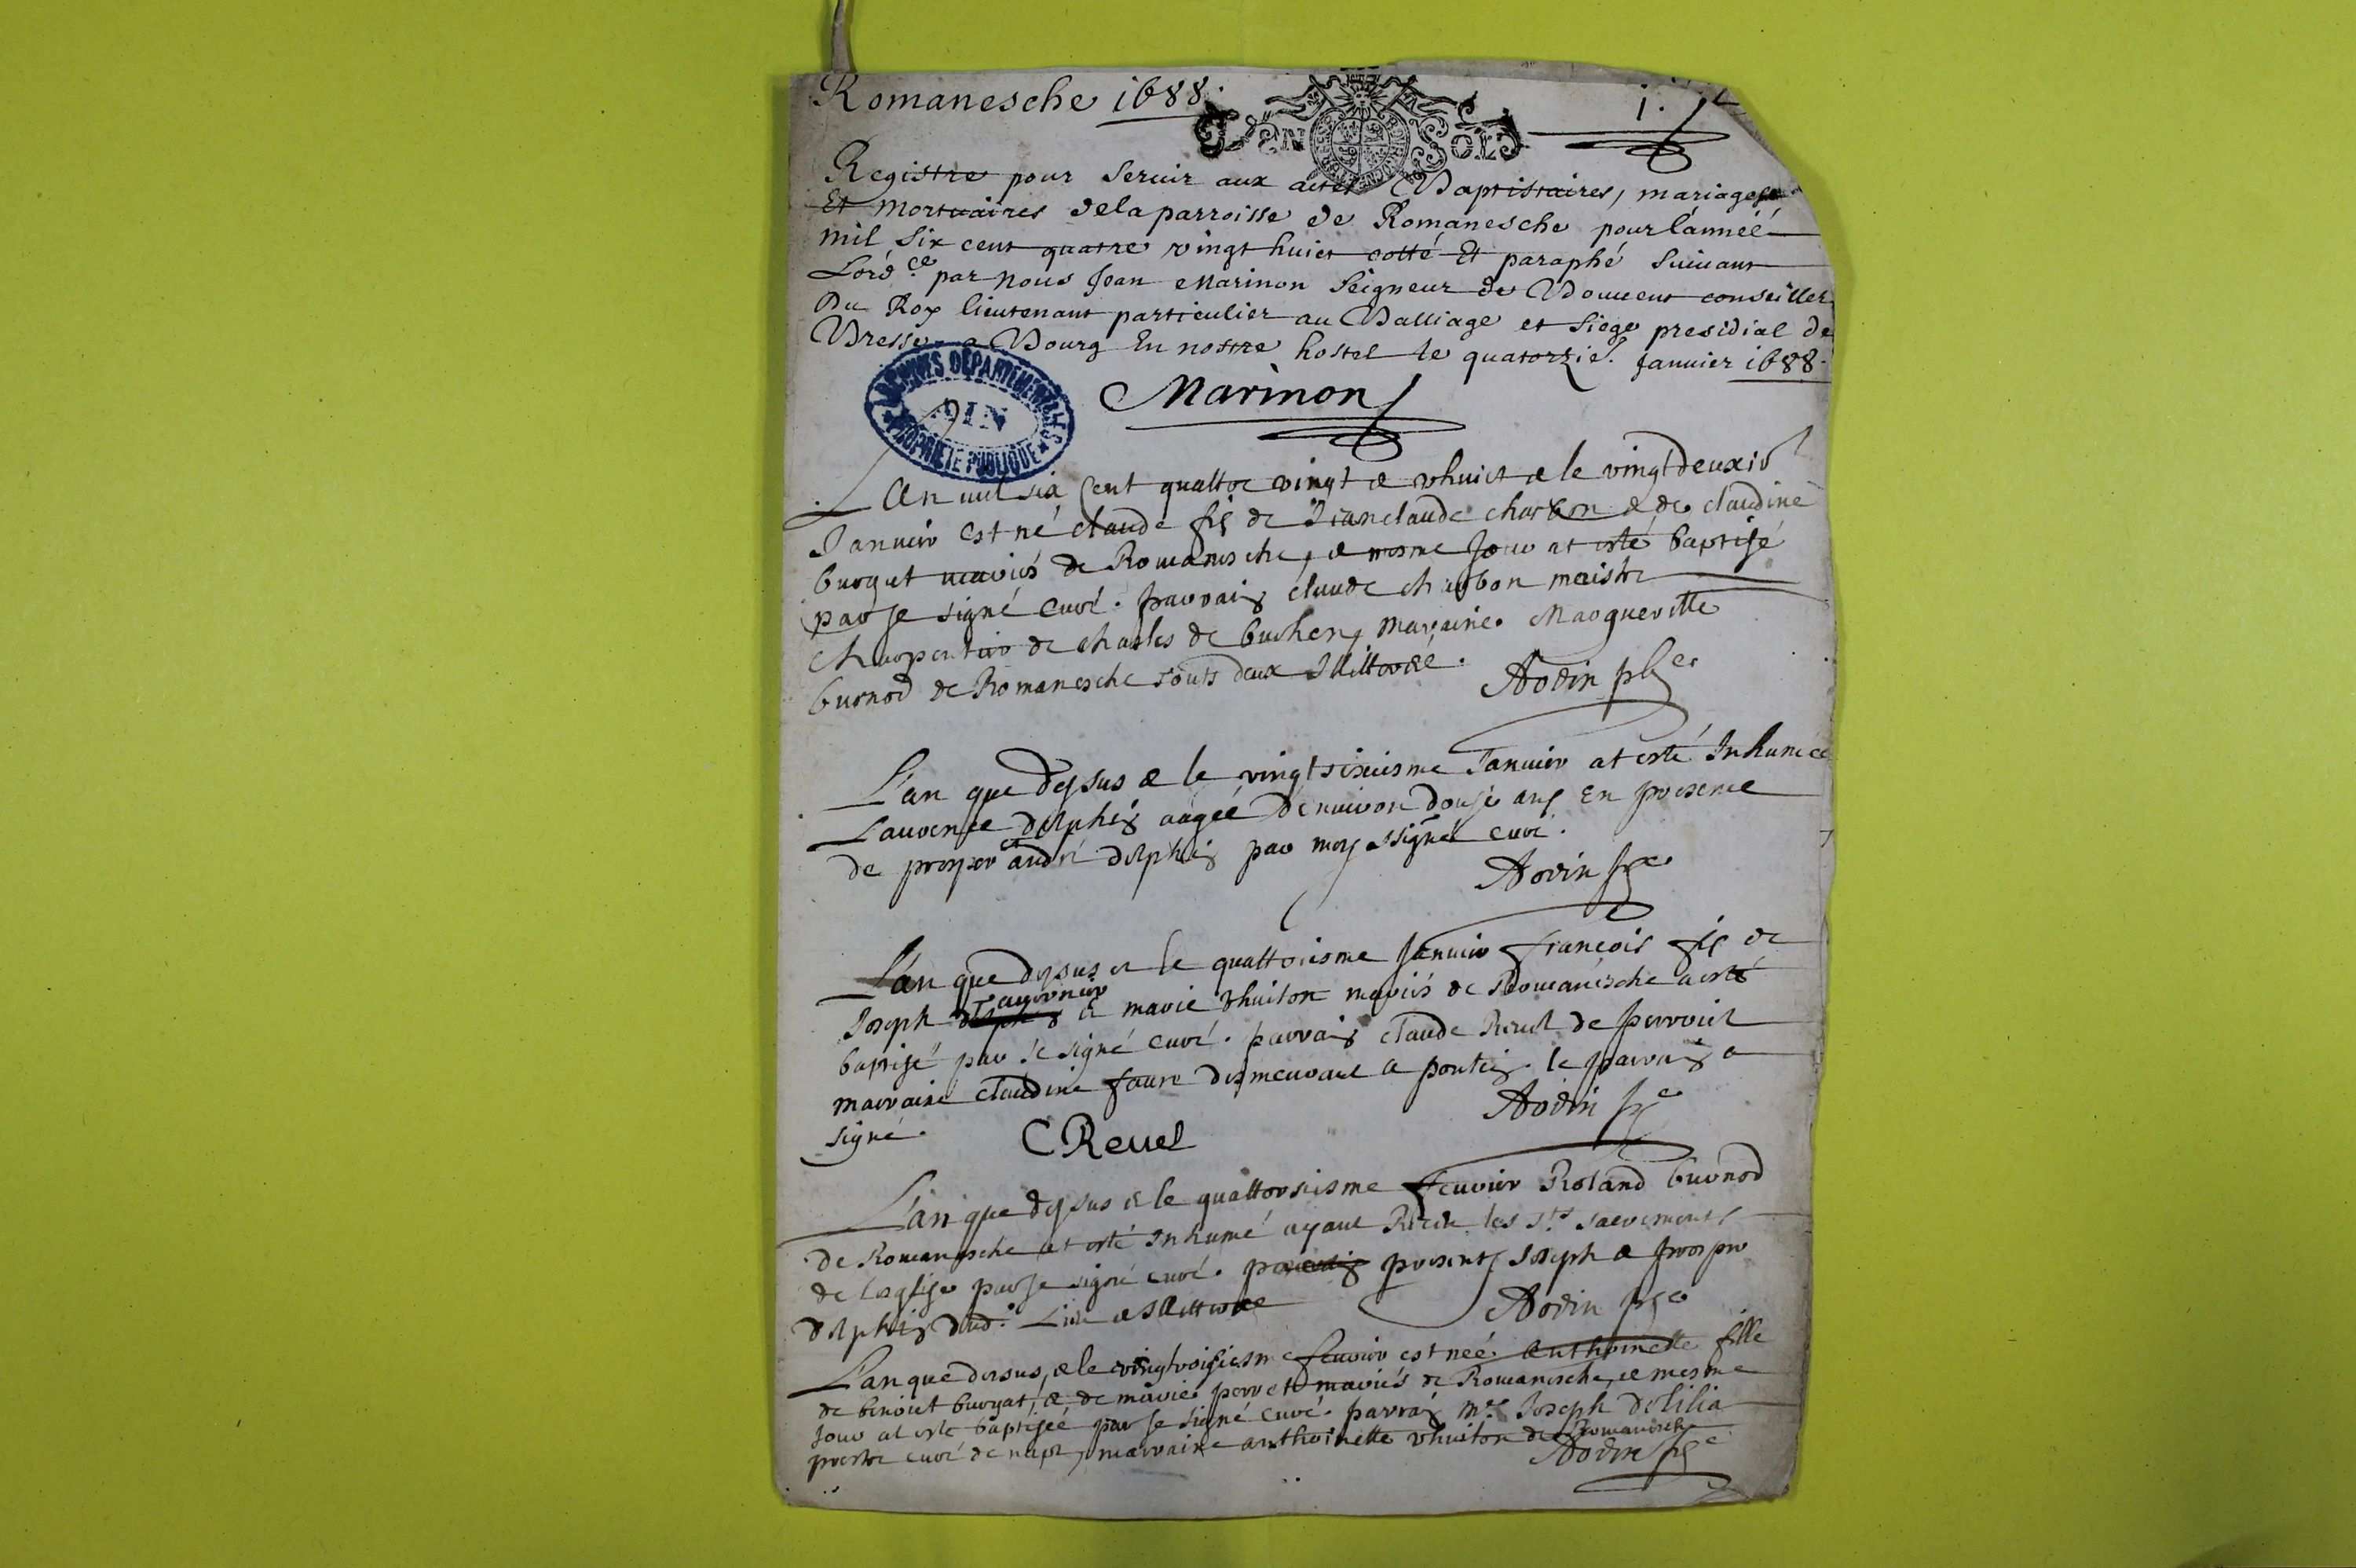 Romanesche 1688.
1.
DEUX SOLS
Registre pour Seruir aux actes Baptistaires, mariages
Et Mortuaires dela parroisse de Romanesche pour lánnéé
mil Six cent quatre vingt huict cotté Et paraphé suiuant
Lord.ce par Nous Jean Marinon Seigneur de conseiller
Du Roy lieutenant particulier au Balliage et siege presidial de
Bresse a Bourg En nostre hostel le quatorzie. Janvier 1688.
Marinon
ARCHIVES DEPARTEMENTALES
AIN
PROPRIETE PUBLIQUE
L'An mil six cent quattre vingt & vhuict & le vingtdeuxi
Januier est né claude fils de Jeanclaude charbon & de claudine
burgat mariés de Romanesche, & mesme Jour at esté baptisé
par Je signé curé. parrain claude charbon maistre
charpentier de charles de marraine Margueritte
burnod de Romanesche touts deux Illitteré.
Aodin pbre
L'an que dessus & le vingtsixiesme Januier at esté Inhumée
Laurence delphis aagéé denuiron douse ans En presence
de prosper & andré delphis par moy ssigné curé.
Aodin pbre
L'an que dessus et le quattoriesme Januier françois fils de
Joseph Tauernier & marie vhuiton mariés de Romanesche a esté
baptisé par Je signé curé. parrain claude Reuel de perrouse
marraine claudine faure demeurant a pontis. le parrain a
signé.
Aodin pbre
C Reuel
L'an que dessus & le quattorsiesme feurier Roland burnod
de Romanesche at esté Inhumé ayant Receu les Sts sacrements
de l'esglise par Je signé curé. presents Joseph & prosper
delphis dud. Lieu & Illitteré
Aodin pbre
L'an que dessus, & le vingtroisiesme feurier est néé Anthoinette fille
de benoict burgat, & de marie perret mariés de Romanesche, & mesme
Jour at esté baptiséé par Je signé curé. parrain mre Joseph delilia
prestre curé de marraine anthoinette vhuiton de Romanesche
Aodin pbre